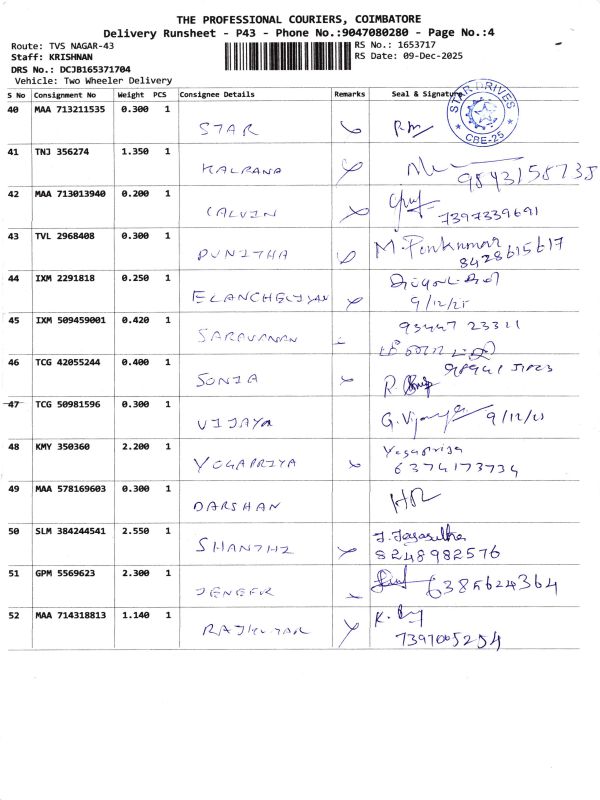 THE PROFESSIONAL COURIERS, COIMBATORE
Delivery Runsheet - P43 - Phone No.:9047080280 - Page No.:4
Route: TVS NAGAR-43 RS No.: 1653717
Staff: KRISHNAN RS Date: 09-Dec-2025
DRS No.: DCJB165371704
Vehicle: Two Wheeler Delivery
S No Consignment No Weight PCS Consignee Details Remarks Seal & Signature
STAR DRIVES
CBE-25
40 MAA 713211535 0.300 1
STAR
41 TNJ 356274 1.350 1
KALPANA
9843158735
42 MAA 713013940 0.200 1
CALVIN
7397339691
43 TVL 2968408 0.300 1
PUNITHA M. Ponkumar
8428615617
44 IXM 2291818 0.250 1
ELANCHELIYAN
9/12/25
45 IXM 509459001 0.420 1
93447 23321
SARAVANAN
46 TCG 42055244 0.400 1
SONIA R.
47 TCG 50981596 0.300 1
VIJAYA G. Vijaya 9/12/25
48 KMY 350360 2.200 1
Yogapriya
YOGAPRIYA 6374173734
49 MAA 578169603 0.300 1
DARSHAN
50 SLM 384244541 2.550 1
J. Jayasutha
SHANTHI 8248982576
51 GPM 5569623 2.300 1
JENEER 6385624364
52 MAA 714318813 1.140 1
RAJKUMAR K.
7397005254